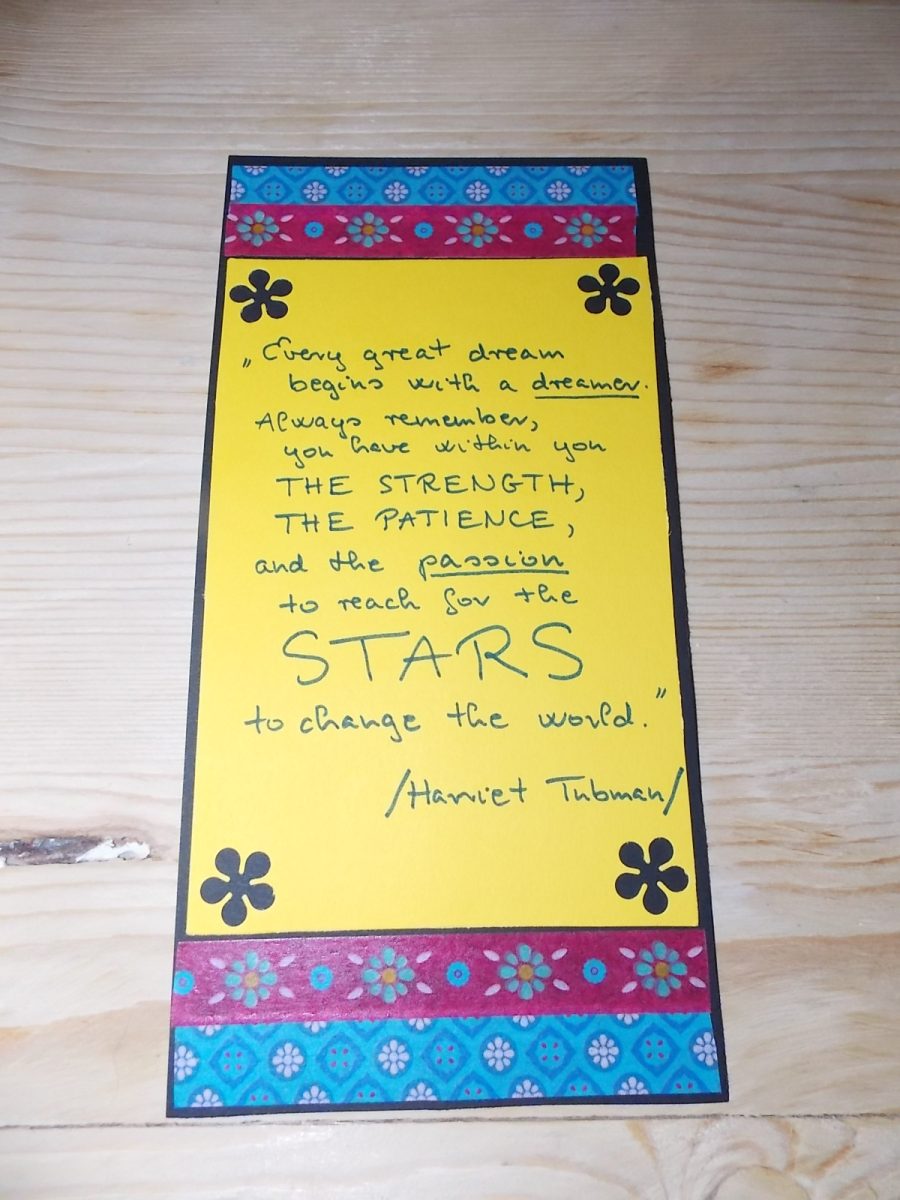 „Every great dream
begins with a dreamer.
Always remember,
you have within you
THE STRENGTH,
THE PATIENCE,
and the passion
to reach for the
STARS
to change the world.”
/Harriet Tubman/